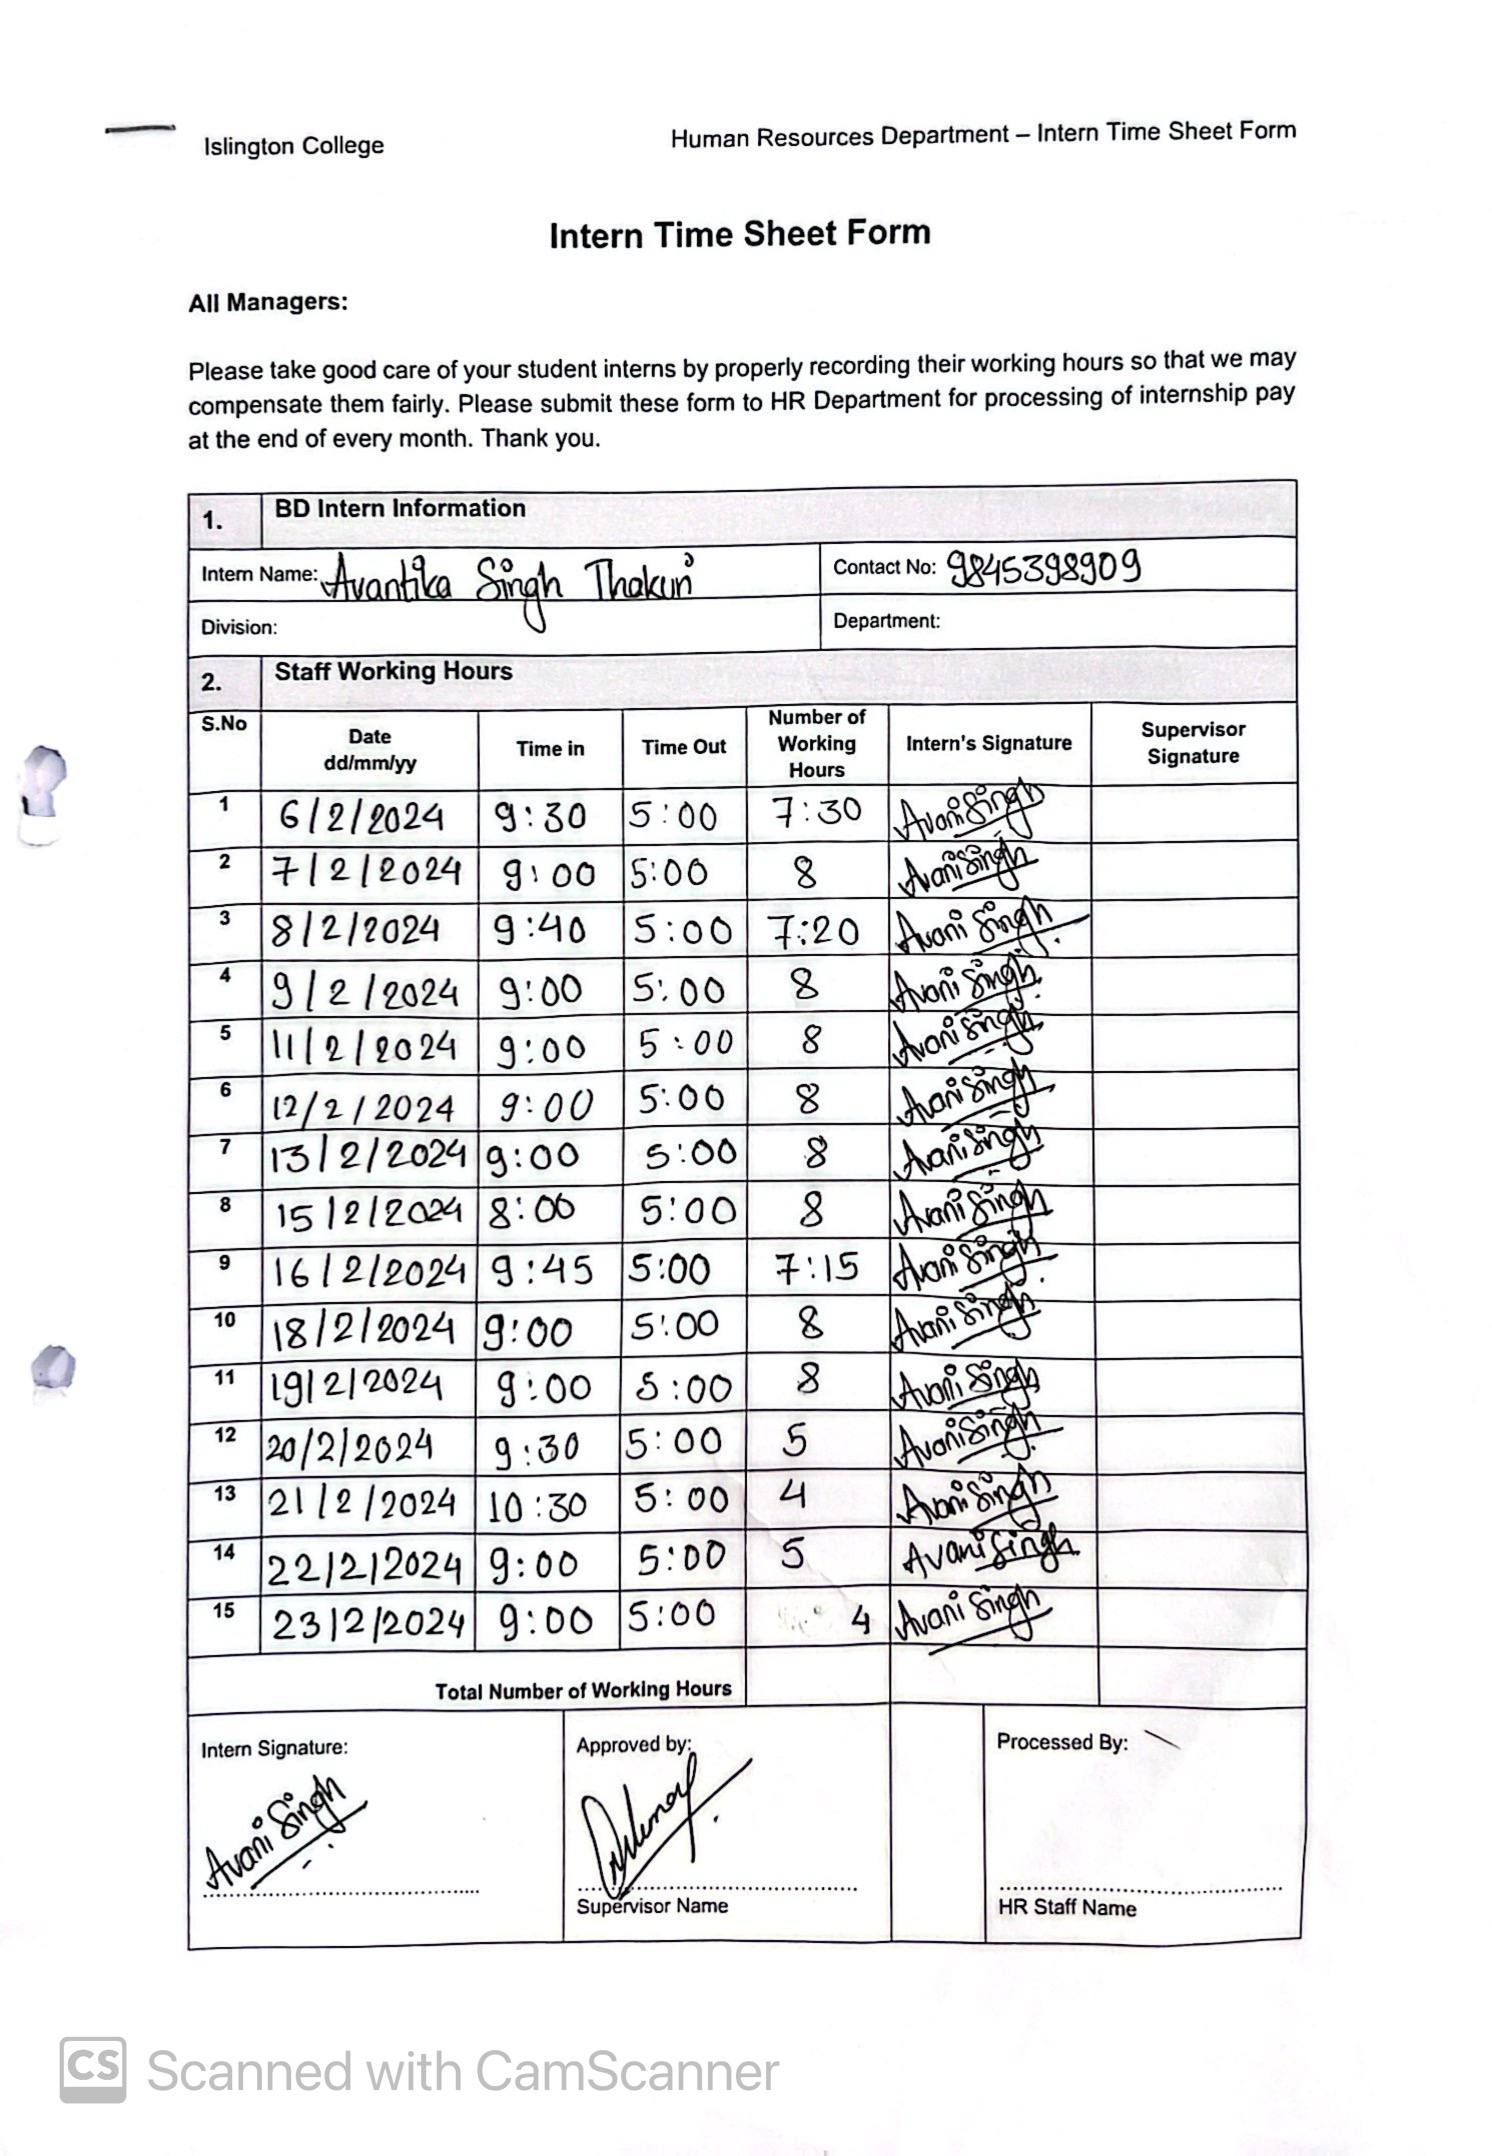 Islington College
Human Resources Department – Intern Time Sheet Form
Intern Time Sheet Form
All Managers:
Please take good care of your student interns by properly recording their working hours so that we may
compensate them fairly. Please submit these form to HR Department for processing of internship pay
at the end of every month. Thank you.
1. BD Intern Information
Intern Name: Avantika Singh Thakuri Contact No: 9845398909
Division: Department:
2. Staff Working Hours
S.No Date dd/mm/yy Time in Time Out Number of Working Hours Intern's Signature Supervisor Signature
1 6/2/2024 9:30 5:00 7:30 Avani Singh
2 7/2/2024 9:00 5:00 8 Avani Singh
3 8/2/2024 9:40 5:00 7:20 Avani Singh
4 9/2/2024 9:00 5:00 8 Avani Singh
5 11/2/2024 9:00 5:00 8 Avani Singh
6 12/2/2024 9:00 5:00 8 Avani Singh
7 13/2/2024 9:00 5:00 8 Avani Singh
8 15/2/2024 8:00 5:00 8 Avani Singh
9 16/2/2024 9:45 5:00 7:15 Avani Singh
10 18/2/2024 9:00 5:00 8 Avani Singh
11 19/2/2024 9:00 5:00 8 Avani Singh
12 20/2/2024 9:30 5:00 5 Avani Singh
13 21/2/2024 10:30 5:00 4 Avani Singh
14 22/2/2024 9:00 5:00 5 Avani Singh
15 23/2/2024 9:00 5:00 4 Avani Singh
Total Number of Working Hours
Intern Signature: Approved by: Processed By:
Avani Singh
Supervisor Name HR Staff Name
CS Scanned with CamScanner